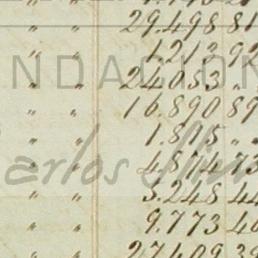 " " 29.498 81
" " 1.212 9
" " 24.053 "
" " 16.890 89
" " 1.815 "
" " 4.874 73
" " 3.248 44
" " 9.773 40
" " 27.409 39
NDACION
arlos